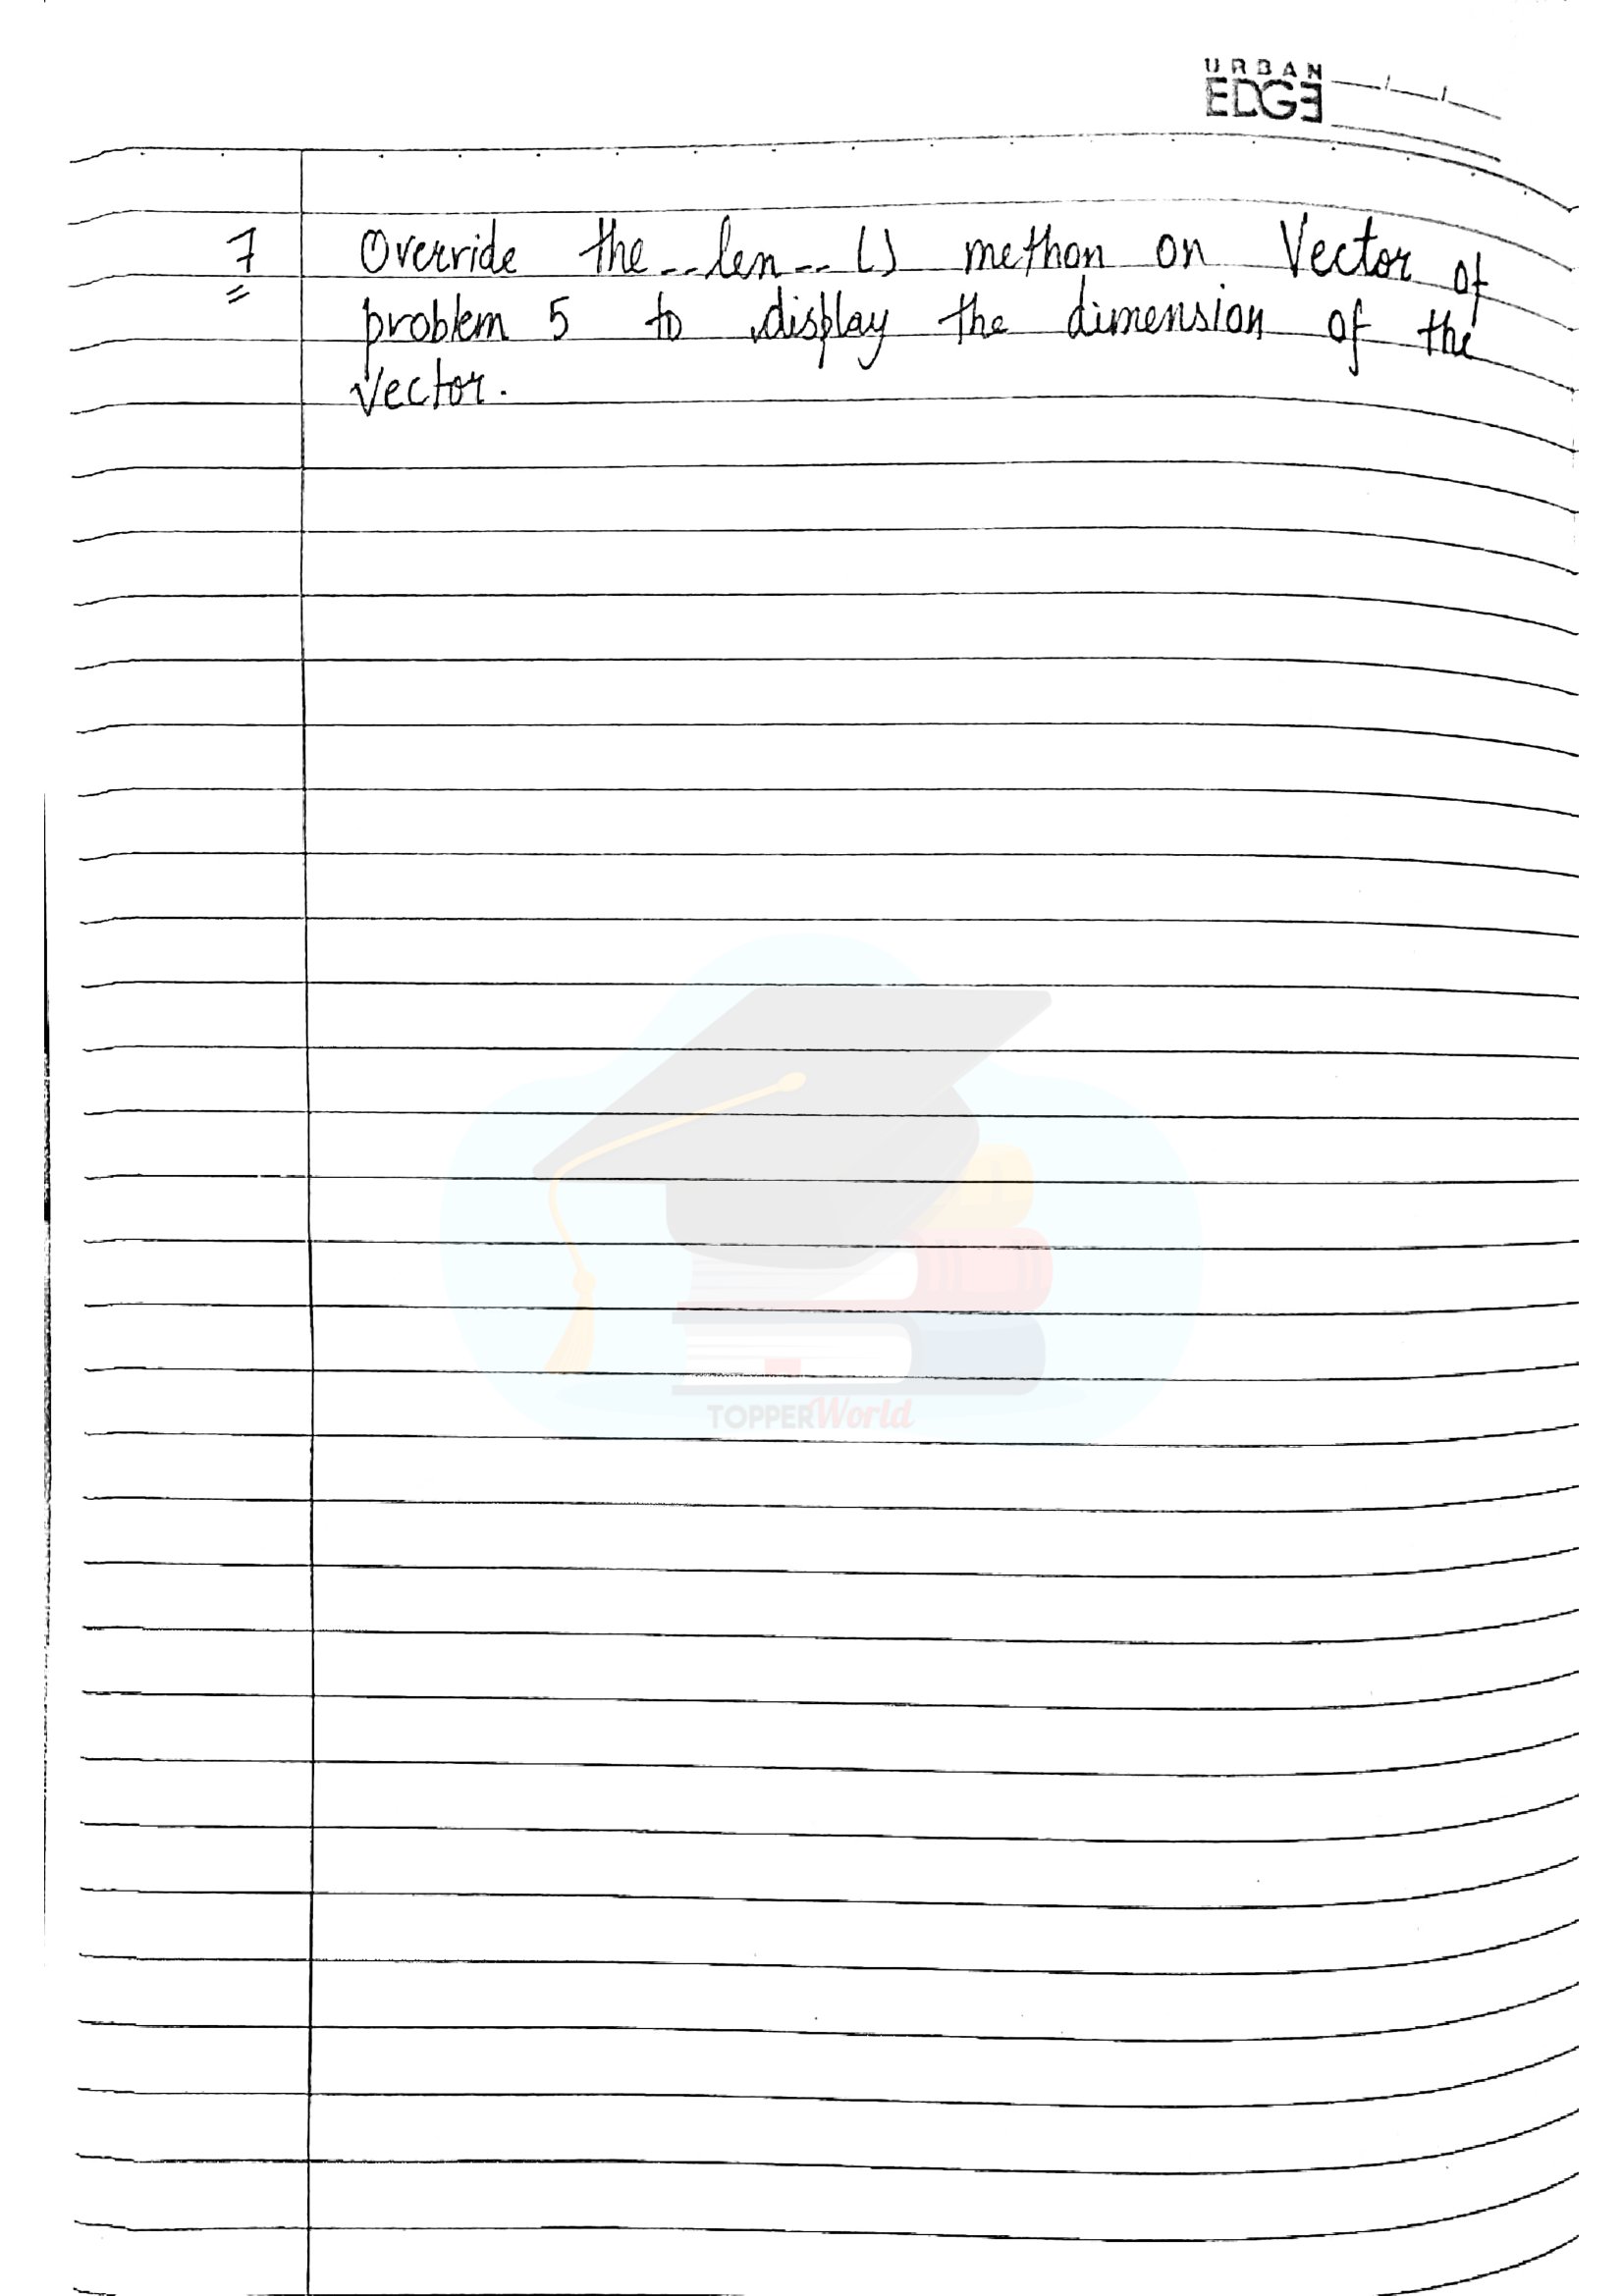 URBAN
EDGE
7 Override the __len__() methon on Vector of
problem 5 to display the dimension of the
vector.
TOPPERWorld